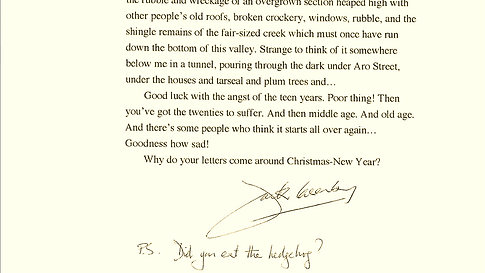 the rubble and wreckage of an overgrown section heaped high with
other people's old roofs, broken crockery, windows, rubble, and the
shingle remains of the fair-sized creek which must once have run
down the bottom of this valley. Strange to think of it somewhere
below me in a tunnel, pouring through the dark under Aro Street,
under the houses and tarseal and plum trees and…
Good luck with the angst of the teen years. Poor thing! Then
you've got the twenties to suffer. And then middle age. And old age.
And there's some people who think it starts all over again…
Goodness how sad!
Why do your letters come around Christmas-New Year?
P.S. Did you eat the hedgehog?